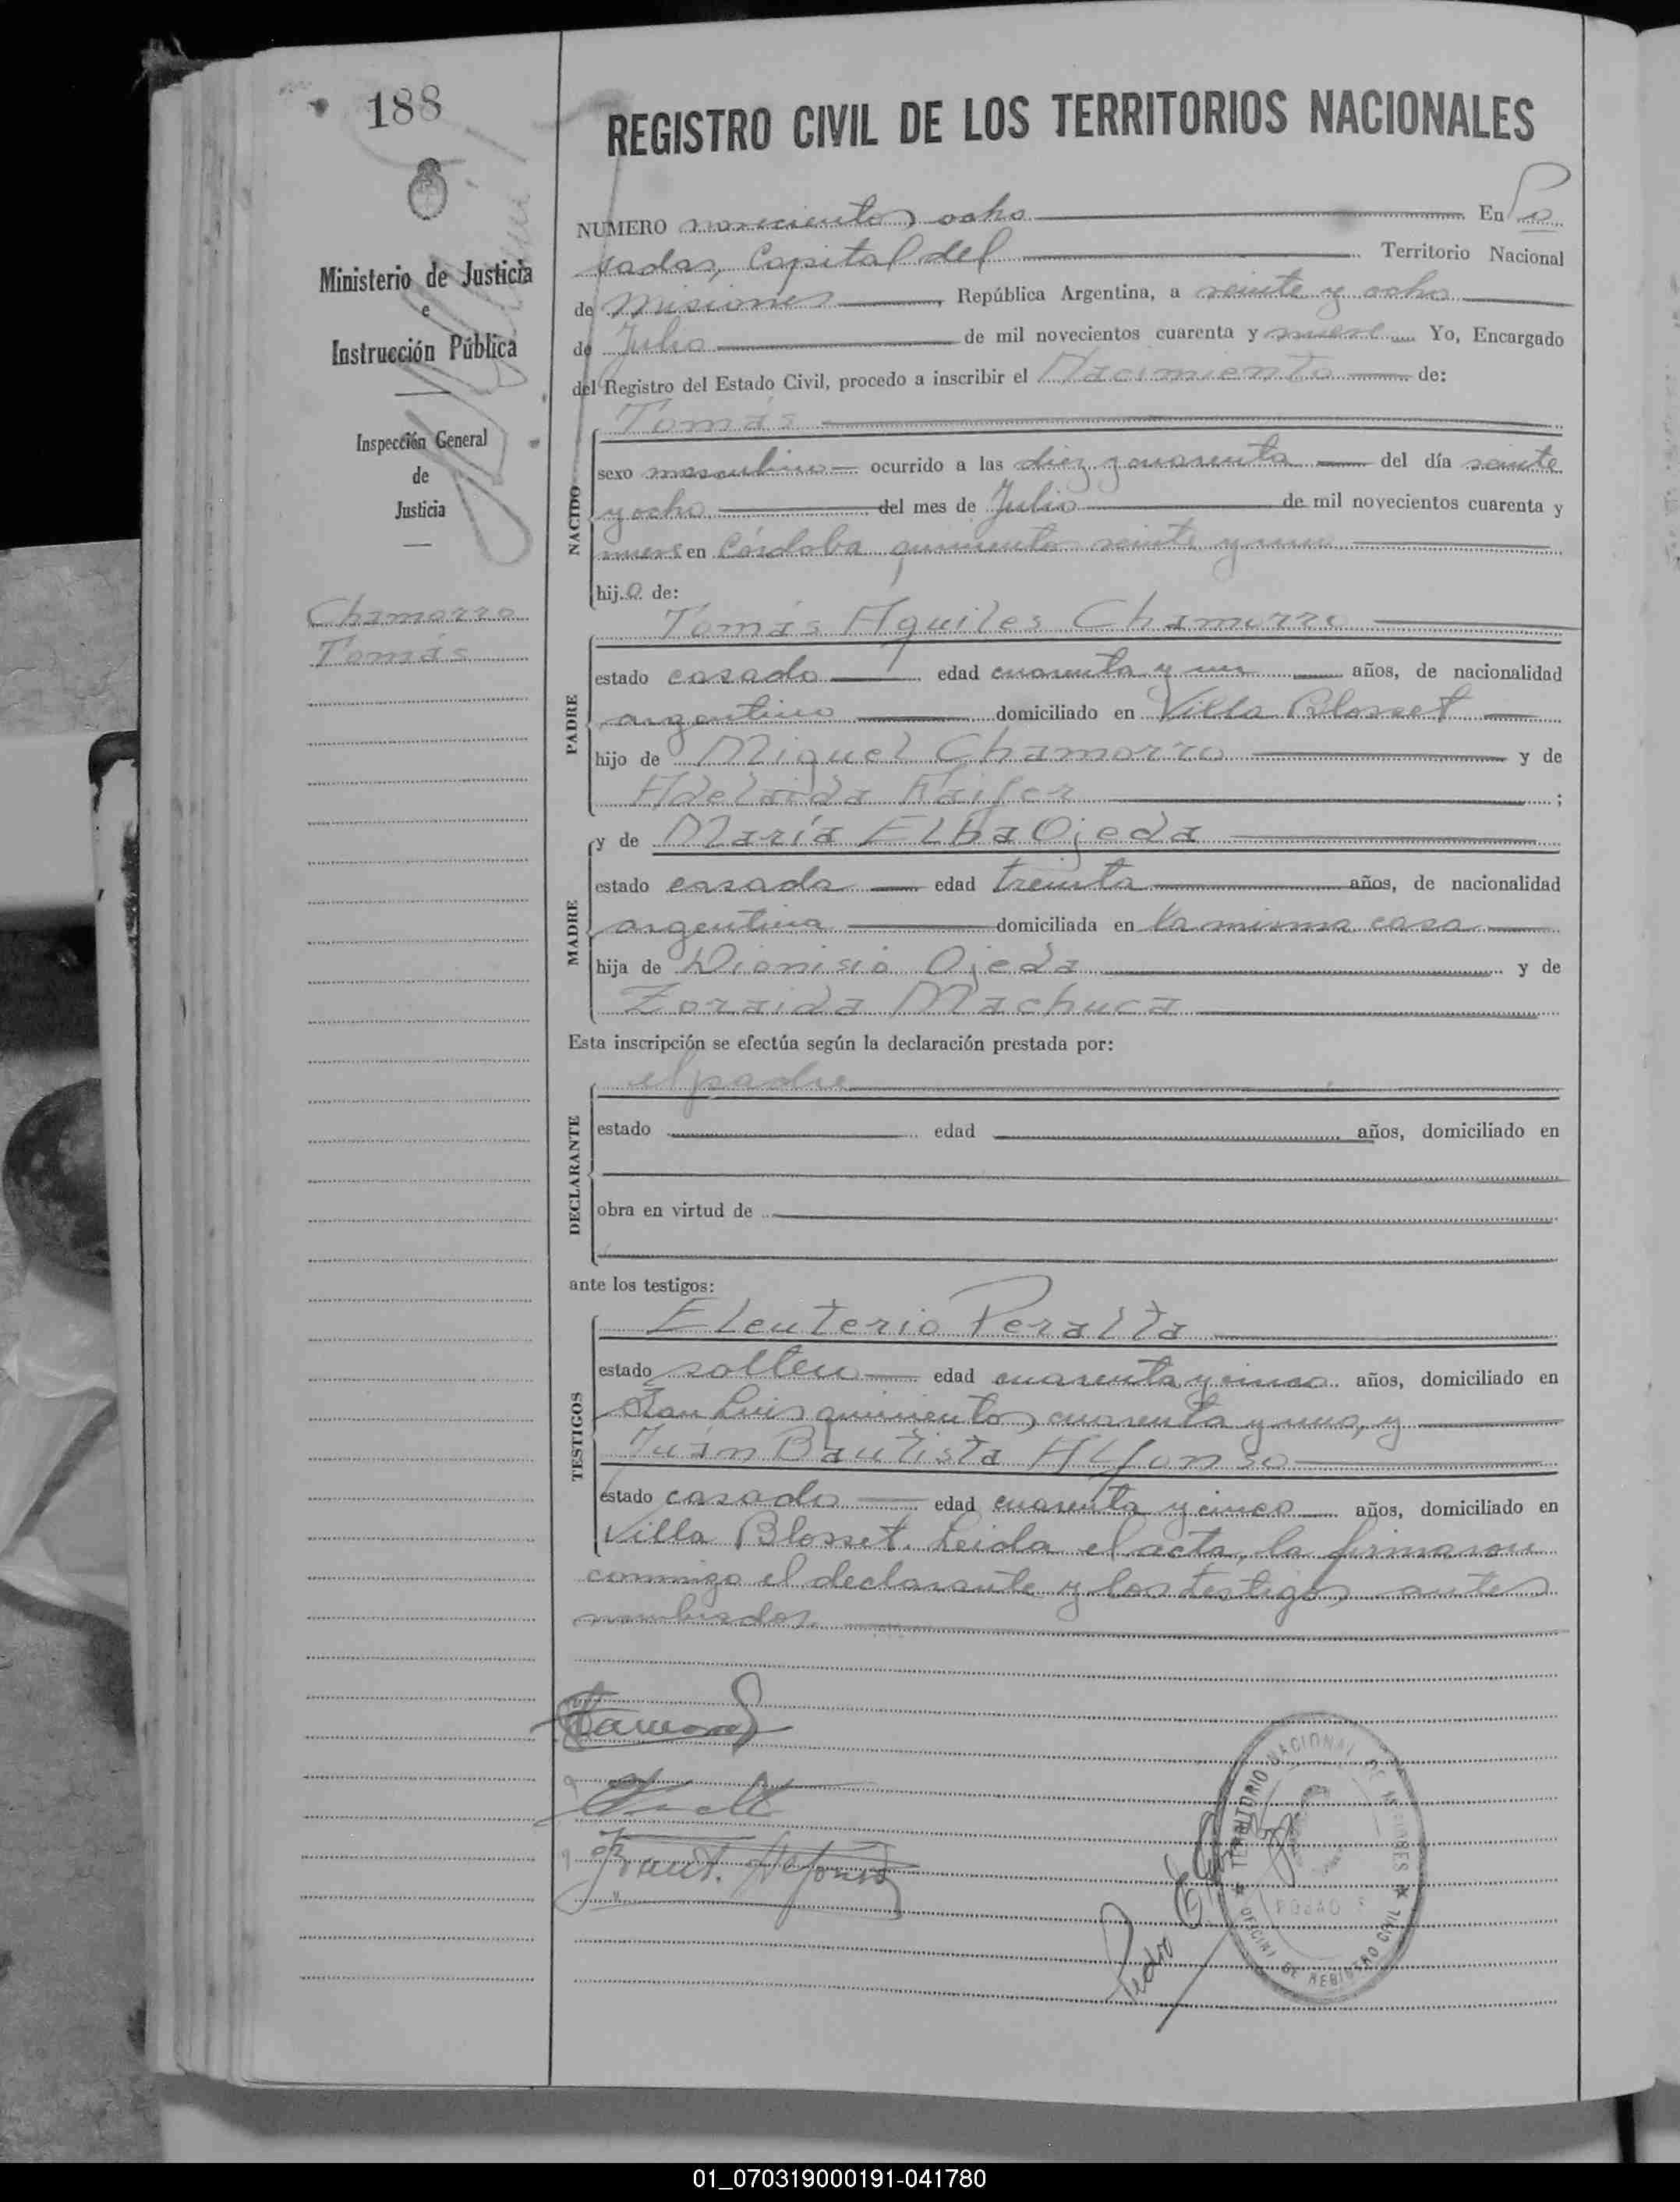 188
REGISTRO CIVIL DE LOS TERRITORIOS NACIONALES
NUMERO novecientos ocho En Po
sadas, Capital del Territorio Nacional
de Misiones, República Argentina, a veinte y ocho
de Julio de mil novecientos cuarenta y nueve Yo, Encargado
del Registro del Estado Civil, procedo a inscribir el Nacimiento de:
Ministerio de Justicia
e
Instrucción Pública
Inspección General
de
Justicia
Chamorro
Tomás
NACIDO
Tomás
sexo masculino ocurrido a las diez y cuarenta del día veinte
y ocho del mes de Julio de mil novecientos cuarenta y
nueve en Córdoba quinientos veinte y uno
hijo de:
PADRE
Tomás Aquiles Chamorro
estado casado edad cuarenta y un años, de nacionalidad
argentino domiciliado en Villa Blosset
hijo de Miguel Chamorro y de
Adelaida ;
MADRE
y de María Elba Ojeda
estado casada edad treinta años, de nacionalidad
argentina domiciliada en la misma casa
hija de Dionisio Ojeda y de
Zoraida Machuca
Esta inscripción se efectúa según la declaración prestada por:
DECLARANTE
el padre
estado edad años, domiciliado en
obra en virtud de
ante los testigos:
TESTIGOS
Eleuterio Peralta
estado soltero edad cuarenta y cinco años, domiciliado en
San Luis quinientos cuarenta y uno, y
Juan Bautista Alfonso
estado casado edad cuarenta y cinco años, domiciliado en
Villa Blosset. Leida el acta, la firmaron
conmigo el declarante y los testigos antes
nombrados
TERRITORIO NACIONAL DE MISIONES
POSADAS
OFICINA DE REGISTRO CIVIL
Pedro
01_070319000191-041780